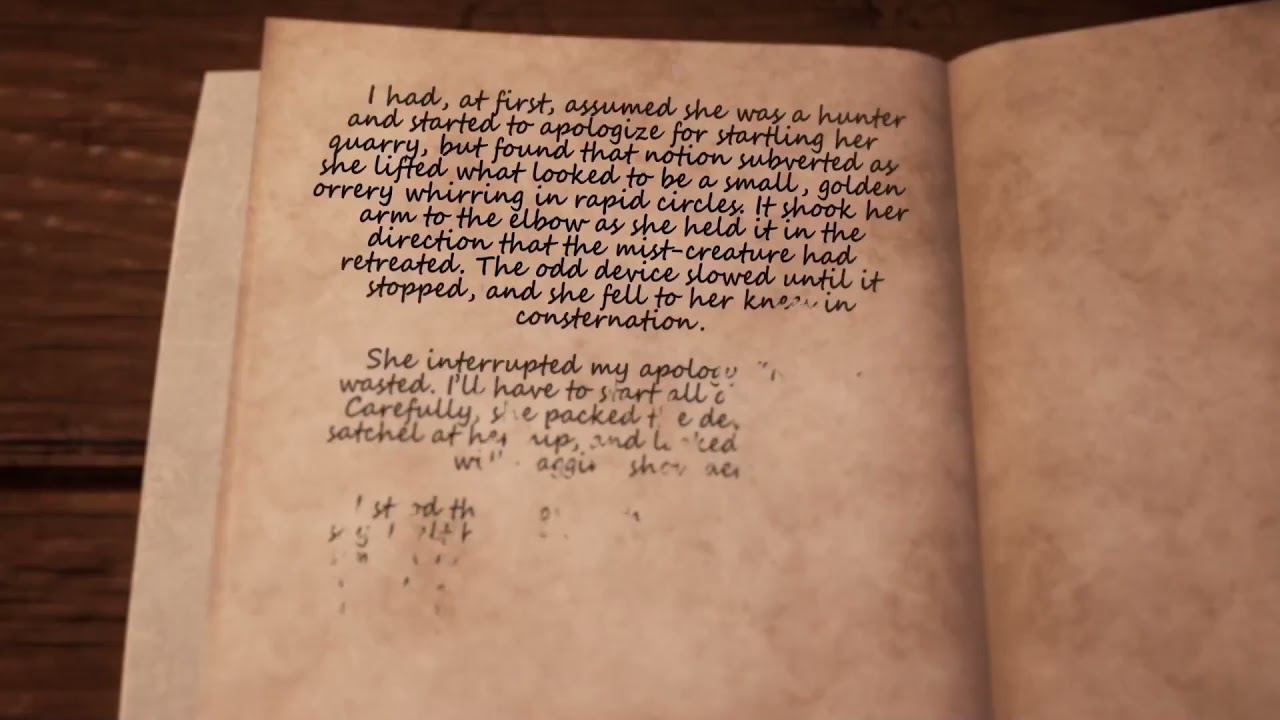 I had, at first, assumed she was a hunter
and started to apologize for startling her
quarry, but found that notion subverted as
she lifted what looked to be a small, golden
orrery whirring in rapid circles. It shook her
arm to the elbow as she held it in the
direction that the mist-creature had
retreated. The odd device slowed until it
stopped, and she fell to her in
consternation.
She interrupted my
wasted. I'll have to start all
Carefully, she packed
satchel at and